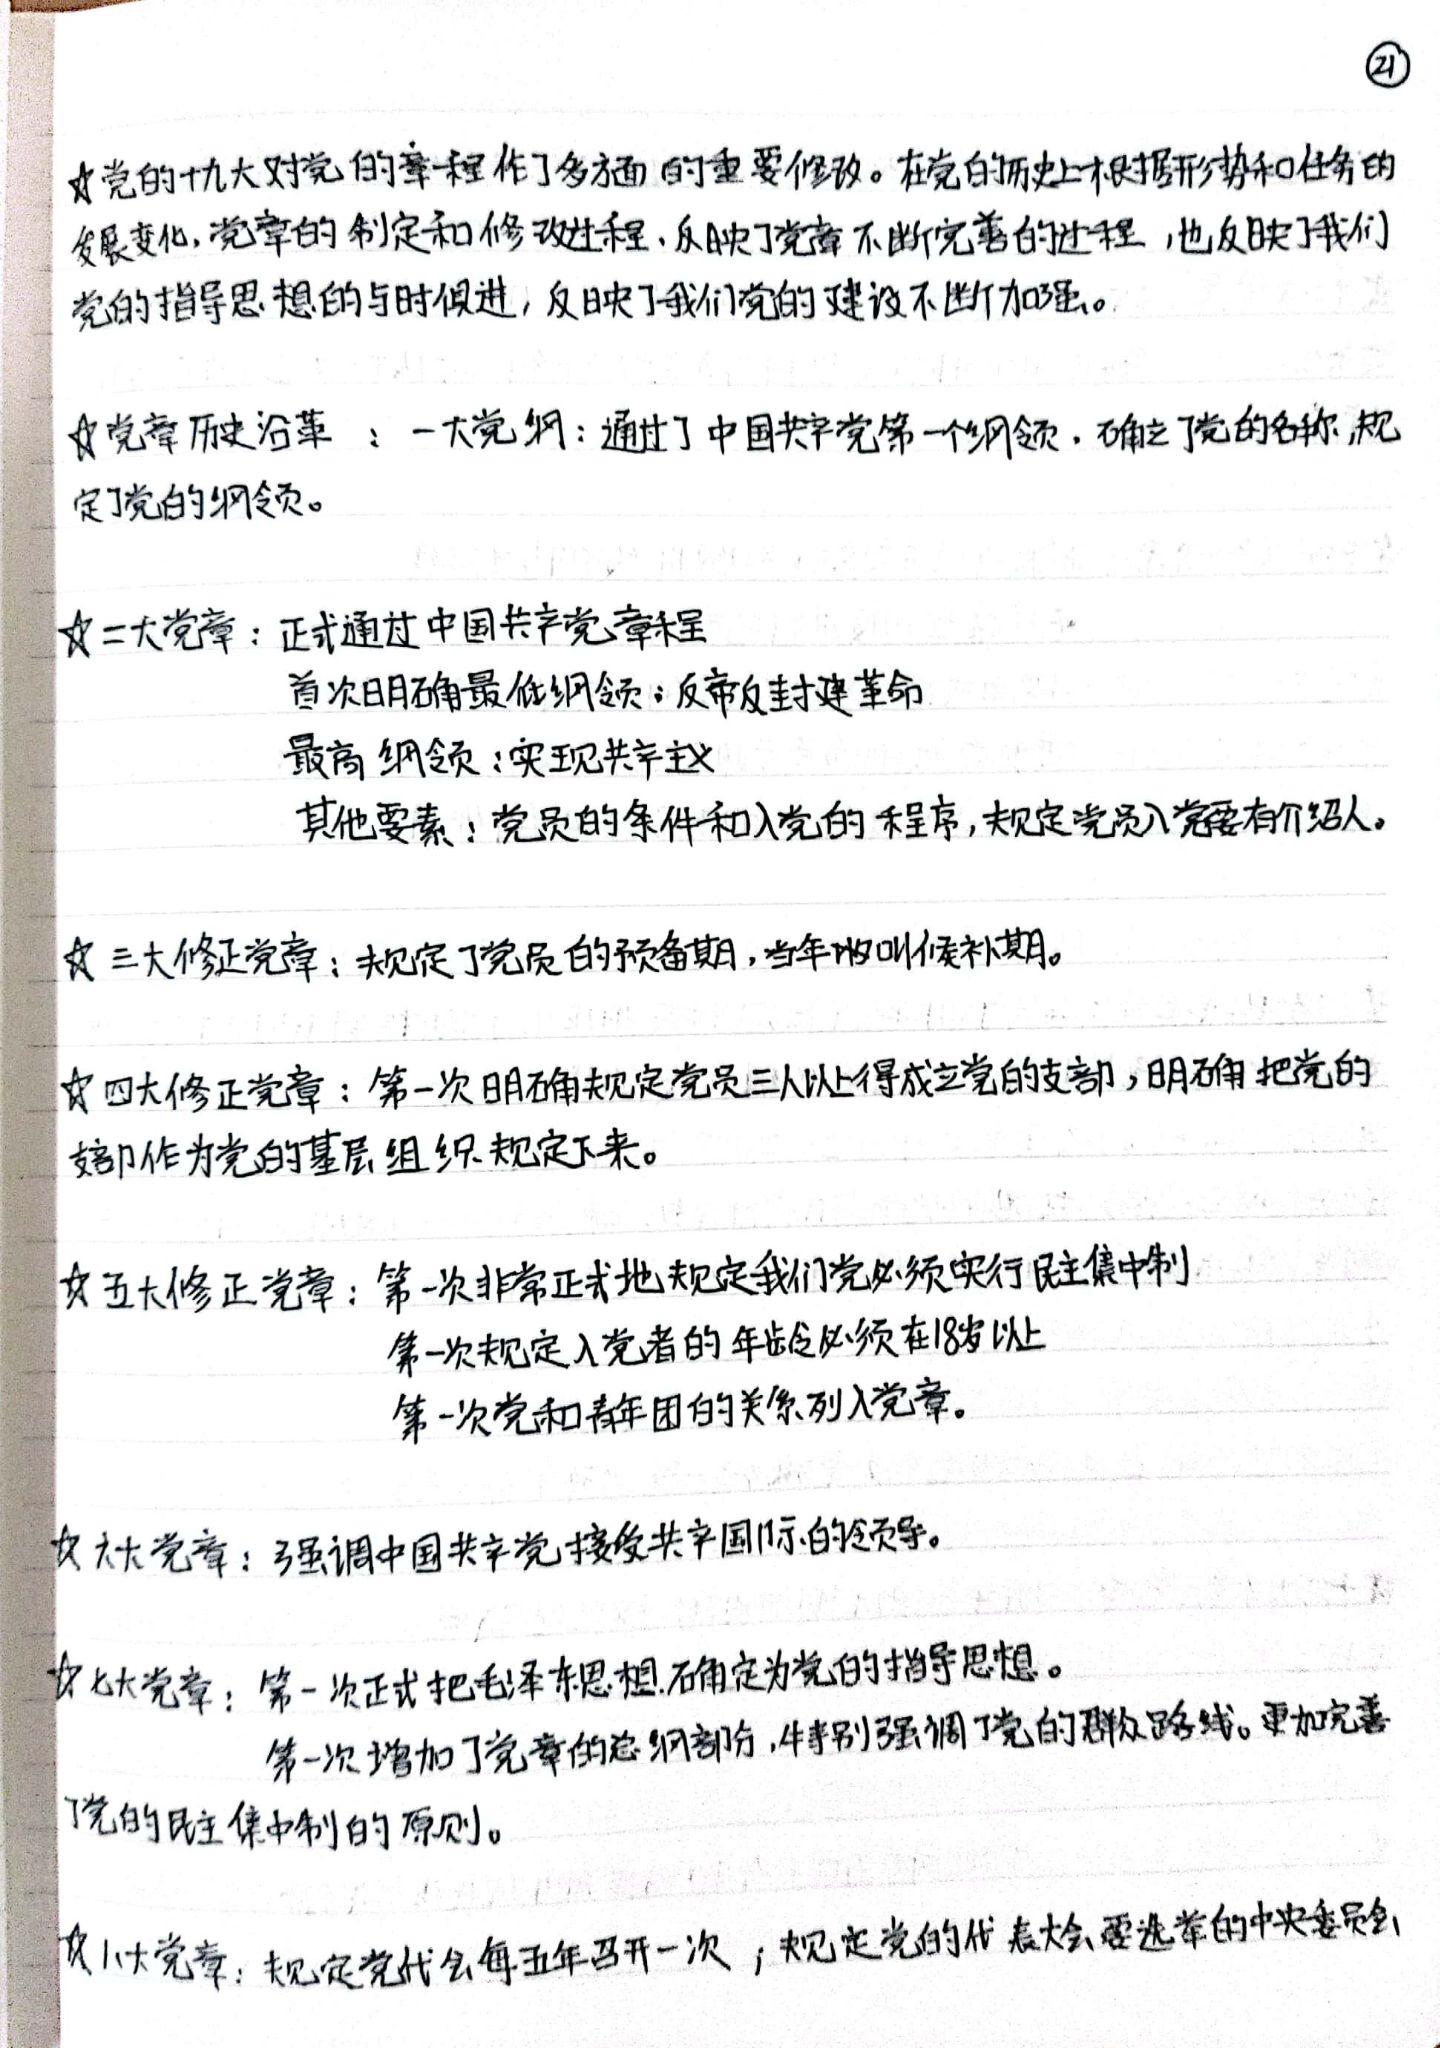 21
☆党的十九大对党的章程作了多方面的重要修改。在党的历史上根据形势和任务的
发展变化,党章的制定和修改过程、反映了党章不断完善的过程,也反映了我们
党的指导思想的与时俱进,反映了我们党的建设不断加强。
☆党章历史沿革:一大党纲:通过了中国共产党第一个纲领,确立了党的名称,规
定了党的纲领。
☆二大党章:正式通过中国共产党章程
首次明确最低纲领:反帝反封建革命
最高纲领:实现共产主义
其他要素:党员的条件和入党的程序,规定党员入党要有介绍人。
☆三大修正党章:规定了党员的预备期,当年叫候补期。
☆四大修正党章:第一次明确规定党员三人以上得成立党的支部,明确把党的
支部作为党的基层组织规定下来。
☆五大修正党章:第一次非常正式地规定我们党必须实行民主集中制
第一次规定入党者的年龄必须在18岁以上
第一次党和青年团的关系列入党章。
☆六大党章:强调中国共产党接受共产国际的领导。
☆七大党章:第一次正式把毛泽东思想确定为党的指导思想。
第一次增加了党章的总纲部分,特别强调了党的群众路线。更加完善
了党的民主集中制的原则。
☆八大党章:规定党代会每五年召开一次;规定党的代表大会要选举的中央委员会